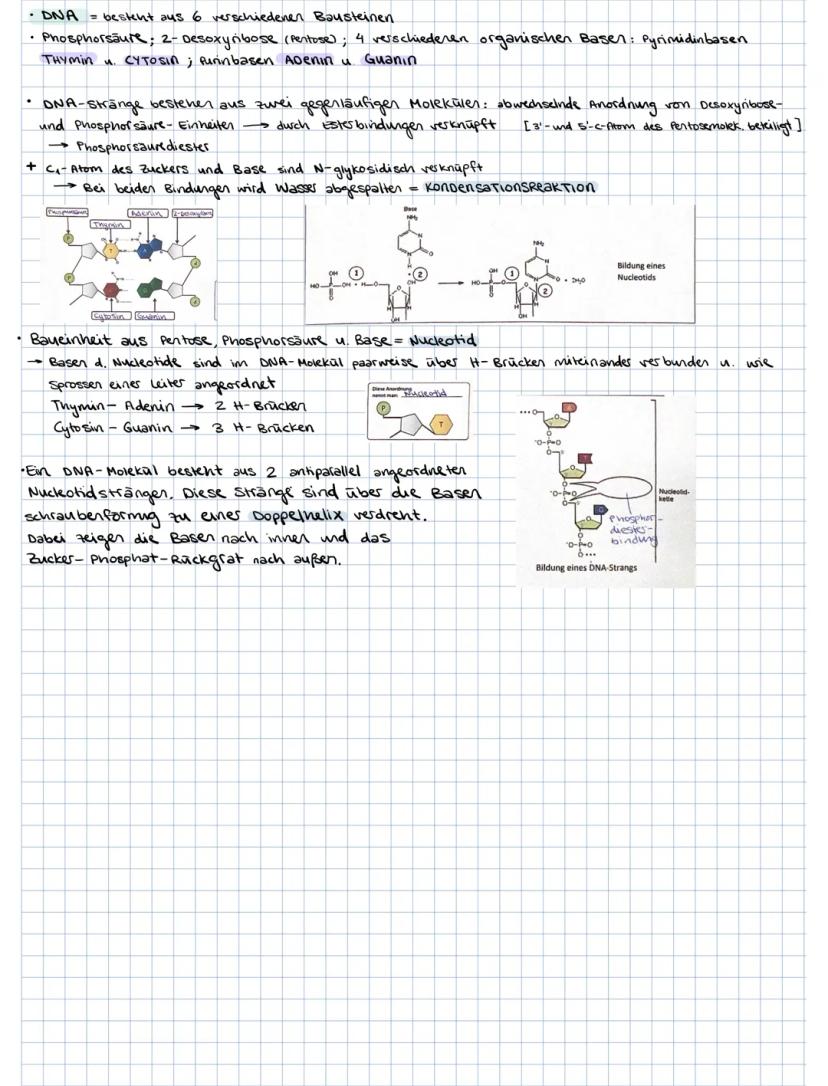 • DNA = besteht aus 6 verschiedenen Bausteinen
• Phosphorsäure; 2-Desoxyribose (Pentose); 4 verschiedenen organischen Basen: Pyrimidinbasen
THYMIN u. CYTOSIN; Purinbasen ADENIN u. GUANIN
• DNA-Stränge bestehen aus zwei gegenläufigen Molekülen: abwechselnde Anordnung von Desoxyribose-
und Phosphorsäure-Einheiten → durch Esterbindungen verknüpft [3'-und 5'-C-Atom des Pentosemolek. beteiligt]
→ Phosphorsäurediester
+ C₁-Atom des Zuckers und Base sind N-glykosidisch verknüpft
→ Bei beiden Bindungen wird Wasser abgespalten = KONDENSATIONSREAKTION
Phosphorsäure Adenin 2-Desoxyribose
Thymin
P T A
P
Cytosin Guanin
Base
NH₂
N
N O
H
OH 1 2 OH
HO-P-OH + H-O O
O
H H
OH
→
NH₂
N
N O + 2H₂O
OH 1 2
HO-P-O O
O
H H
OH
Bildung eines
Nucleotids
• Baueinheit aus Pentose, Phosphorsäure u. Base = Nucleotid
→ Basen d. Nucleotide sind im DNA-Molekül paarweise über H-Brücken miteinander verbunden u. wie
Sprossen einer Leiter angeordnet
Thymin-Adenin → 2 H-Brücken
Cytosin-Guanin → 3 H-Brücken
Diese Anordnung
nennt man: Nucleotid
P T
• Ein DNA-Molekül besteht aus 2 antiparallel angeordneten
Nucleotidsträngen. Diese Stränge sind über die Basen
schraubenförmig zu einer Doppelhelix verdreht.
Dabei zeigen die Basen nach innen und das
Zucker-Phosphat-Rückgrat nach außen.
...O
O
⁻O-P=O
O
T
O
⁻O-P=O
O
Nucleotid-
kette
Phosphor-
diester-
bindung
⁻O-P=O
O...
Bildung eines DNA-Strangs